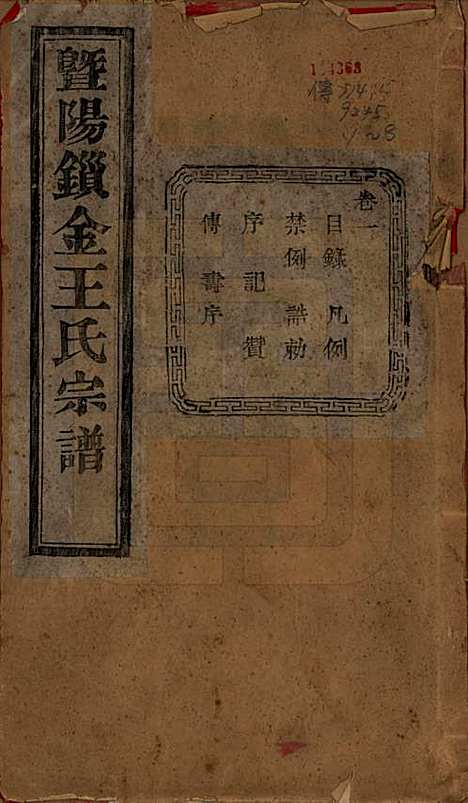 暨陽鎖金王氏宗譜
卷一
目錄 凡例
禁例 誥勅
序 記 贊
傳 壽序
傳